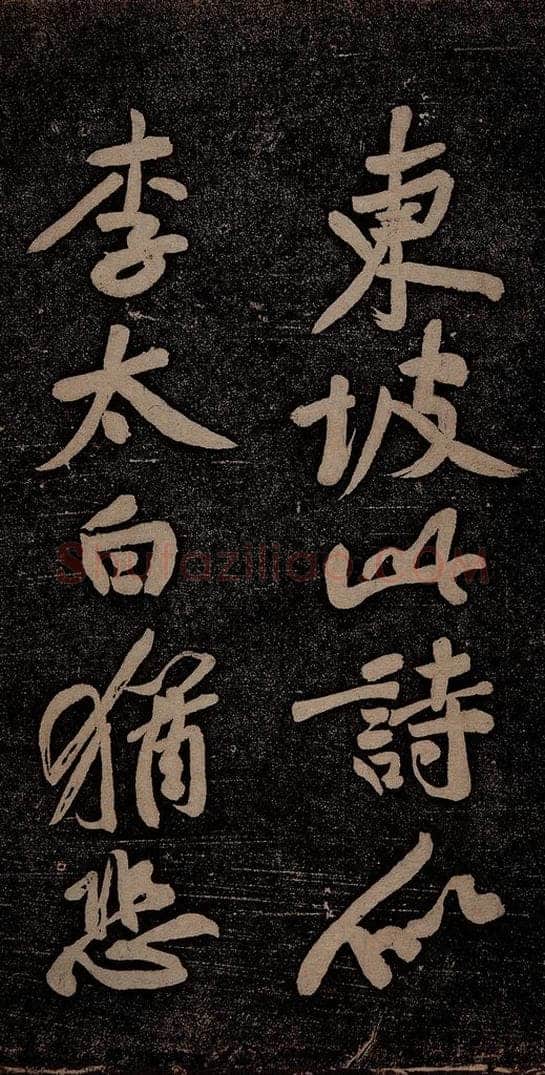 東坡此詩似
李太白猶恐
Shufaziliao.COM